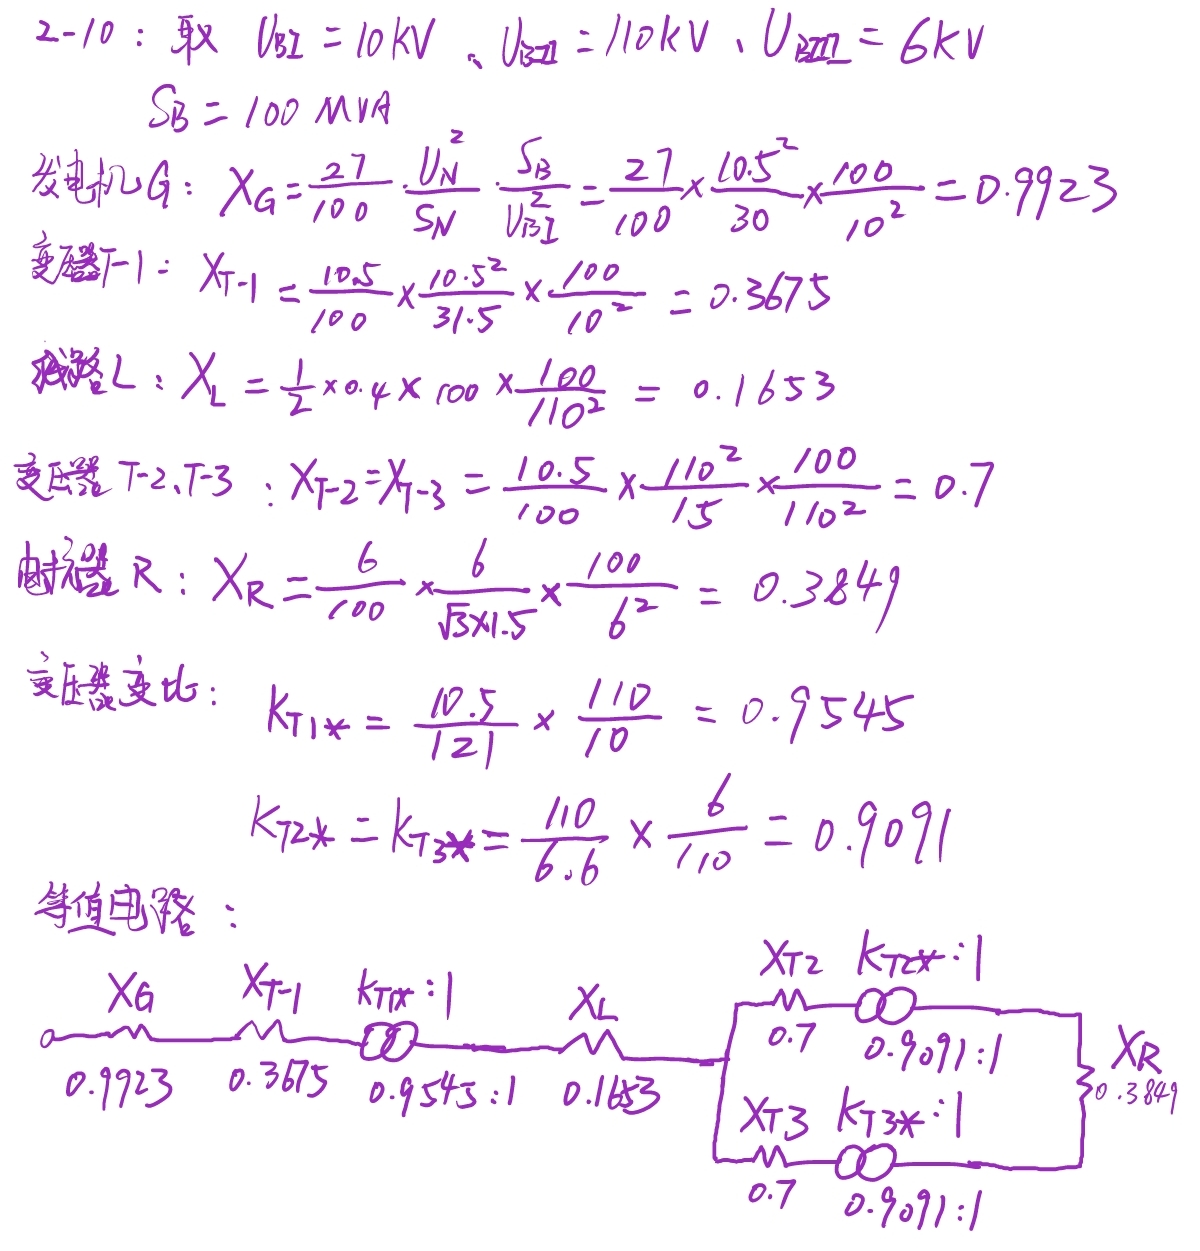 2-10：取 U_BI = 10KV、U_BII = 110KV、U_BIII = 6KV
S_B = 100 MVA
发电机G：X_G = 27/100 · U_N²/S_N · S_B/U_BI² = 27/100 × 10.5²/30 × 100/10² = 0.9923
变压器T-1：X_T-1 = 10.5/100 × 10.5²/31.5 × 100/10² = 0.3675
线路L：X_L = 1/2 × 0.4 × 100 × 100/110² = 0.1653
变压器 T-2、T-3：X_T-2 = X_T-3 = 10.5/100 × 110²/15 × 100/110² = 0.7
电抗器 R：X_R = 6/100 × 6/(√3×1.5) × 100/6² = 0.3849
变压器变比：K_T1* = 10.5/121 × 110/10 = 0.9545
K_T2* = K_T3* = 110/6.6 × 6/110 = 0.9091
等值电路：
X_G X_T-1 K_T1*:1 X_L X_T2 K_T2*:1
0.9923 0.3675 0.9545:1 0.1653 0.7 0.9091:1
X_R
0.3849
X_T3 K_T3*:1
0.7 0.9091:1